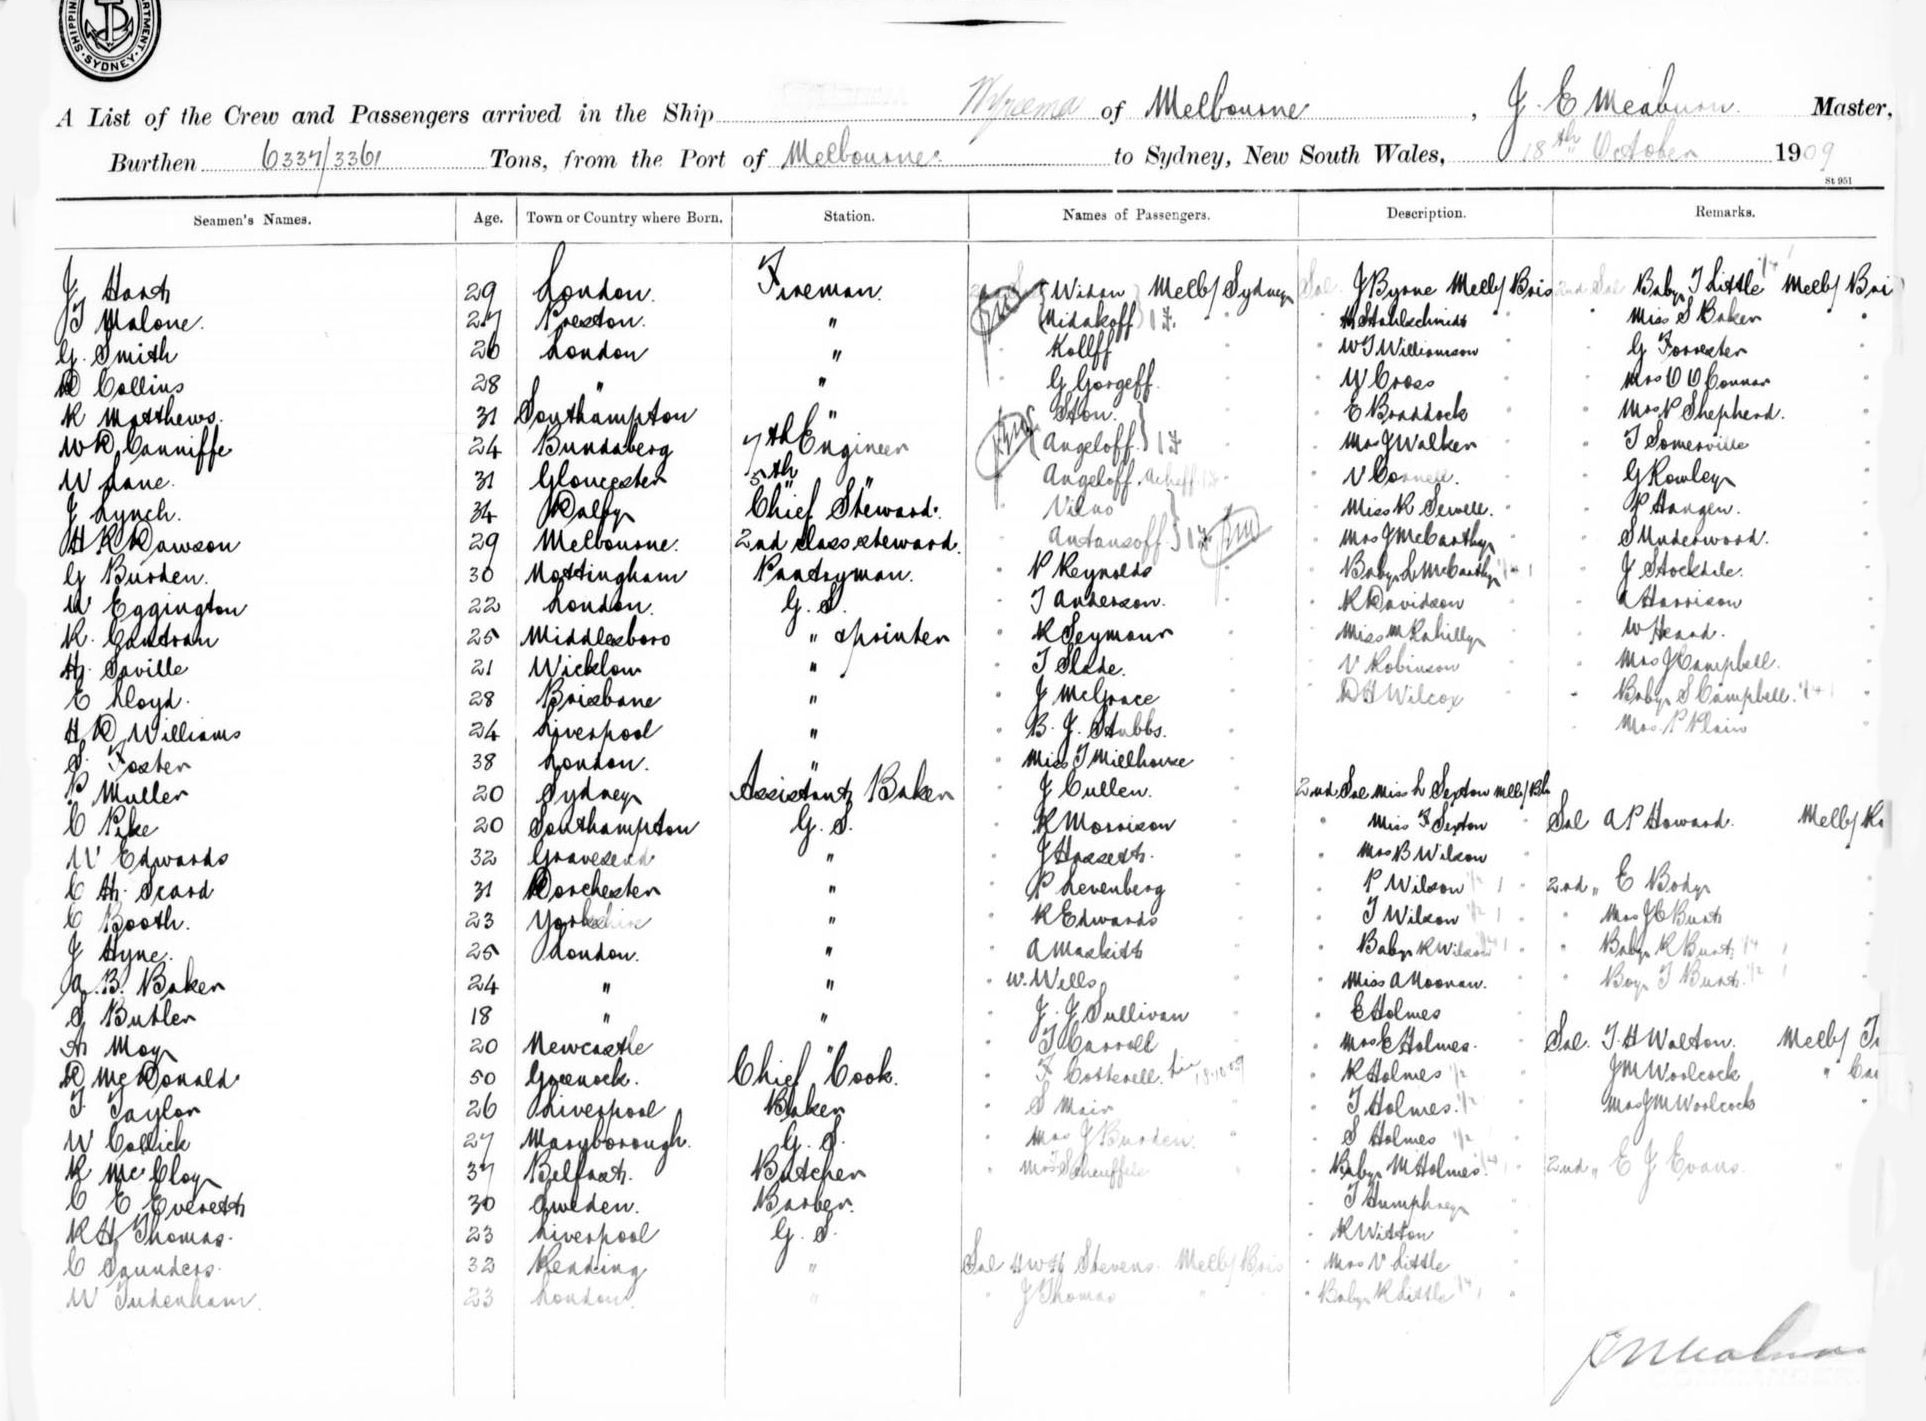 SHIPPING DEPARTMENT SYDNEY
A List of the Crew and Passengers arrived in the Ship Wyreema of Melbourne, J. E Meaburn. Master,
Burthen 6337/3361 Tons, from the Port of Melbourne to Sydney, New South Wales, 18th October 1909
St 951
Seamen's Names. Age. Town or Country where Born. Station. Names of Passengers. Description. Remarks.
J Hart 29 London. Fireman. Widon Melb/Sydney Sal. J Byrne Melb/Bris 2nd Sal Baby T Little 1/4 1 Melb/Bri
T Malone. 27 Preston. " Midakoff 1 F. " " Miss S Baker "
G. Smith 26 London " Kollff " W T Williamson " G Forrester "
D Collins 28 " " G Gorgeff. " W Cross " Mrs O O'Connor "
R Matthews. 31 Southampton " Ston. " E Braddock " Mrs P Shepherd. "
W D Canniffe 24 Bundaberg 7th Engineer Angeloff. 1 F " Mrs J Walker " T Somerville "
W Lane. 31 Gloucester 5th " Angeloff. " V Cornell. " G Rowley "
J Lynch. 34 Dalby Chief Steward. Vilno " Miss R Sewell. " P Hangen. "
H R Dawson 29 Melbourne. 2nd Class steward. Antansoff 1 F " Mrs J McCarthy " S Underwood. "
G Burden. 30 Nottingham Pantryman. " P Reynolds " Baby L McCarthy 1/4 1 " J Stockdile. "
W Eggington 22 London. G. S. " T Anderson. " R Davidson " A Harrison "
R. Cantran 25 Middlesboro " & printer " R Seymour " Miss M Rahilly " W Heard. "
H. Saville 21 Wicklow " " T Slade. " V Robinson " Mrs J Campbell. "
E Lloyd. 28 Brisbane " " J McGrace " D H Wilcox " Baby S Campbell. 1/4 1 "
H D Williams 24 Liverpool " " B. J. Stubbs. " " Mrs. P Plain "
S. Foster 38 London. " " Miss T Millhouse "
P Muller 20 Sydney Assistant Baker " J Cullen. " 2nd Sal Miss L Sexton Melb/Bri
C Pike 20 Southampton G. S. " R Morrison " " Miss F Sexton " Sal A P Howard. Melb/
W Edwards 32 Gravesend " " J Hassett. " " Mrs B Wilson "
C H. Scard 31 Dorchester " " P Levenberg " " P Wilson 1/2 1 " 2nd " E Body "
C Booth. 23 Yorkshire " " R Edwards " " T Wilson 1/2 1 " " Mrs J C Burt "
J Hyne. 25 London. " " A Maskitt " " Baby R Wilson 1/4 1 " " Baby R Burt 1/4 1 "
A. B. Baker 24 " " " W. Wells " " Miss A Noonan. " " Boy T Burt. 1/2 1 "
S Butler 18 " " " J. J Sullivan " " E Holmes "
A Moy 20 Newcastle " " T Carroll " " Mrs E Holmes. " Sal. T. H Walton. Melb/
D McDonald. 50 Greenock. Chief Cook. " F Cotterell. 18.10.09 " R Holmes 1/2 " J M Woolcock "
T. Taylor 26 Liverpool Baker " S Mair " " T Holmes. 1/2 " Mrs J M Woolcock "
W Collick 27 Maryborough. G. S. " Mrs J Burden. " " S Holmes 1/2 "
R McCloy 37 Belfast. Butcher " Mrs Scheuffele " " Baby M Holmes. 1/4 1 " 2nd " E J Evans. "
C E Everett 30 Sweden. Barber. " T Humphrey "
R H Thomas. 23 Liverpool G. S. " R Witton "
C Saunders. 32 Reading " Sal H W H Stevens. Melb/Bris " Mrs V Little "
W Tudenham. 23 London. " " J Thomas " " Baby R Little 1/4 1 "